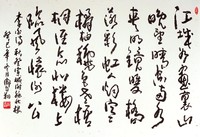 江城如畫裏山
晚望晴空兩水
夾明鏡雙橋
落彩虹人烟寒
橘柚秋色老梧
桐誰念北樓上
臨風懷謝公
李白詩秋登宣城謝朓北樓
癸巳年